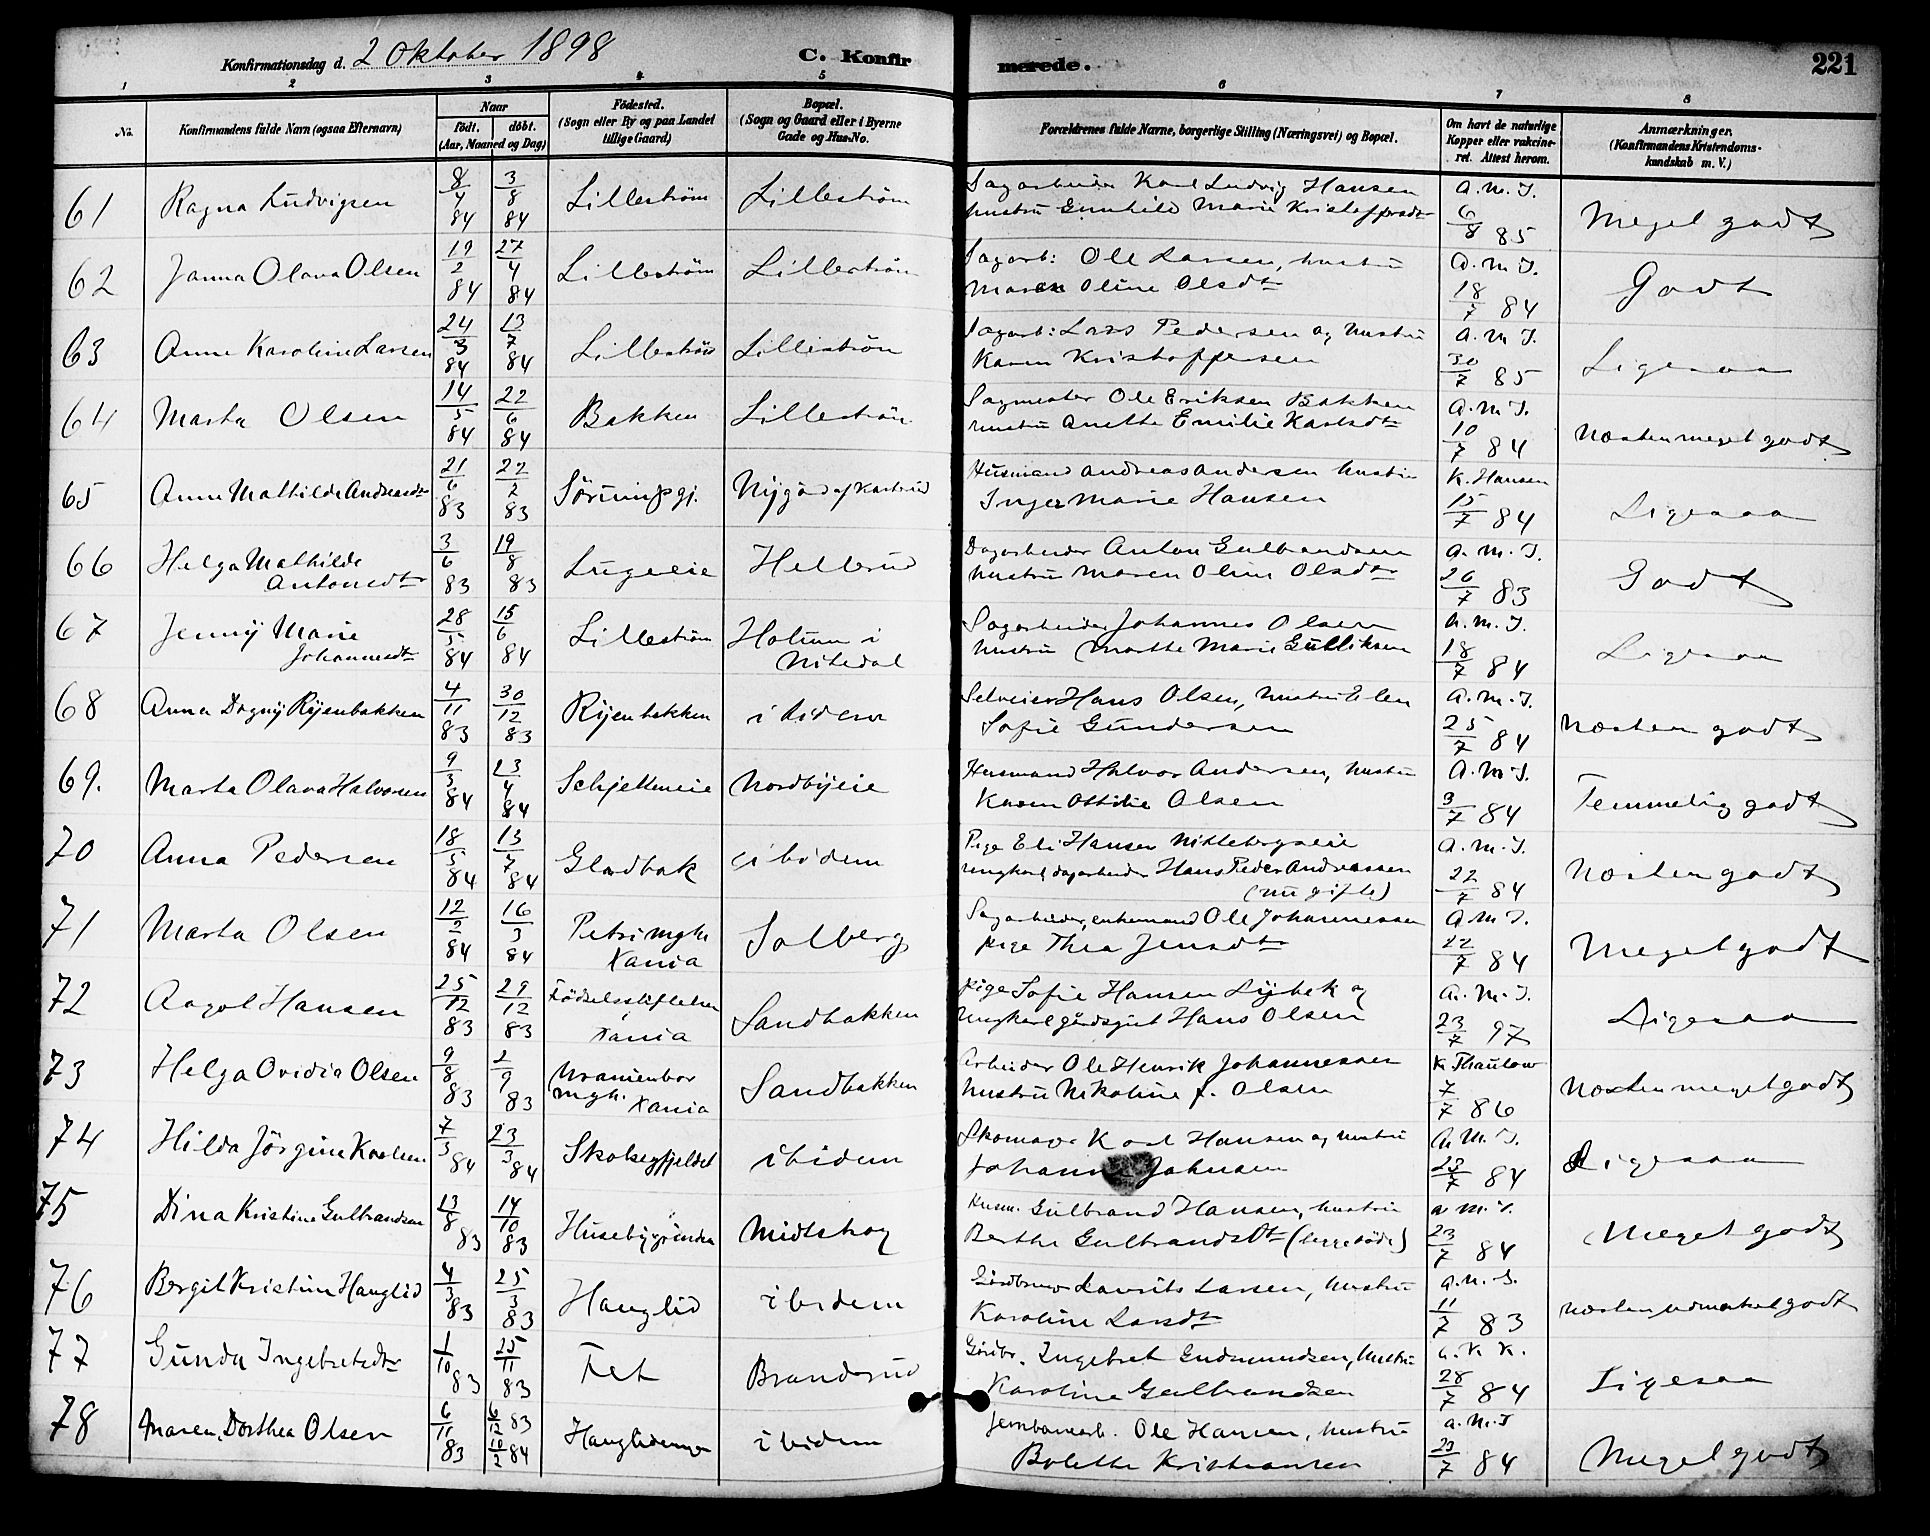 Konfirmationsdag d. 2 Oktober 1898 C. Konfirmerede. 221
1 2 3 4 5 6 7 8
No. Konfirmandens fulde Navn (ogsaa Efternavn) Naar födt. döbt. (Aar, Maaned og Dag) Födested. (Sogn eller By og paa Landet tillige Gaard) Bopæl. (Sogn og Gaard eller i Byerne Gade og Hus-No. Forældrenes fulde Navne, borgerlige Stilling (Næringsvei) og Bopæl. Om havt de naturlige Kopper eller vakcineret. Attest herom. Anmærkninger. (Konfirmandens Kristendomskundskab m. V.)
61 Ragna Ludvigsen 8/4 84 3/8 84 Lilleström Lilleström Sagarbeider Karl Ludvig Hansen a. m. J.
hustru Gunhild Marie Kristoffersdtr 6/8 85 Meget godt
62 Janna Olava Olsen 19/2 84 27/4 84 Lilleström Lilleström Sagarb: Ole Larsen, hustru a. m. J.
Maren Oline Olsdtr 18/7 84 Godt
63 Anne Karoline Larsen 24/3 84 13/7 84 Lilleström Lilleström Sagarb: Lars Pedersen og hustru a. m. J.
Karen Kristoffersen 30/7 85 Ligesaa
64 Marta Olsen 14/5 84 22/6 84 Bakken Lilleström Sagmester Ole Eriksen Bakken a. m. J.
hustru Anette Emilie 10/7 84 Næsten meget godt
65 Anne Mathilde Andreasdtr 21/6 83 22/7 83 Sörum pgj. Nygård af Husmand Andreas Andersen hustru K. Hansen
Inger Marie Hansen 15/7 84 Ligesaa
66 Helga Mathilde Antonsdtr 3/6 83 19/8 83 Lugeeie Hellerud Dagarbeider Anton Gulbrandsen a. m. J.
hustru Maren Oline Olsdtr 26/7 83 Godt
67 Jenny Marie Johannesdtr 28/5 84 15/6 84 Lilleström Holum i Nitedal Sagarbeider Johannes Olsen a. m. J.
hustru Marthe Marie Gulliksen 18/7 84 Ligesaa
68 Anna Dagny Ryenbakken 4/11 83 30/12 83 Ryenbakken ibidem Selveier Hans Olsen, hustru Elen a. m. J.
Sofie Gundersen 25/7 84 Næsten godt
69. Marta Olava Halvorsen 9/3 84 23/4 84 Schjetteneie Nordbyeie Husmand Halvor Andersen, hustru a. m. J.
Karen Ottilie Olsen 3/7 84 Temmelig godt
70 Anna Pedersen 18/5 84 13/7 84 Gladbak ibidem Pige Eli Hansen Nittebergseie a. m. J.
ungkarl dagarbeider Hans Peder Andreassen 22/7 84 Næsten godt
(nu gifte)
71 Marta Olsen 12/2 84 16/3 84 Petri mgh. Xania Solberg Sagarbeider, enkemand Ole Johannessen a. m. J.
pige Thea Jensdtr 22/7 84 Meget godt
72 Aagot Hansen 25/12 83 29/12 83 Födselsstiftelsen Xania Sandbakken pige Sofie Hansen Lybek og a. m. J.
ungkarl gårdsgut Hans Olsen 23/7 97 Ligesaa
73 Helga Ovidia Olsen 9/8 83 2/9 83 Uranienbor mgh. Xania Sandbakken Arbeider Ole Henrik Johannessen K. Thaulow
hustru Nikoline f. Olsen 7/7 86 Næsten meget godt
74 Hilda Jörgine Karlsen 7/3 84 23/3 84 Skolsegfjeldet ibidem Skomager Karl Hansen og hustru a. m. J.
Johanne Johnsen 23/7 84 Ligesaa
75 Dina Kristine Gulbrandsen 13/8 83 14/10 83 Husebygrinden Midtskog Husm. Gulbrand Hansen, hustru a. m. J.
Berthe Gulbrandsdtr (begge döde) 23/7 84 Meget godt
76 Bergit Kristine Hauglid 4/3 83 25/3 83 Hauglid ibidem Gårdbruger Laurits Larsen, hustru a. m. J.
Karoline Larsdtr 11/7 83 Næsten udmærket godt
77 Gunda Ingebretsdtr 1/10 83 25/11 83 Fet Branderud Gårdbr. Ingebret Gudmundsen, hustru a. K. K.
Karoline Gulbrandsen 28/7 84 Ligesaa
78 Maren Dorthea Olsen 6/11 83 6/12 83 10/2 84 ibidem Jernbanearb. Ole Hansen, hustru a. m. J
Bolette Kristiansen 23/7 84 Meget godt